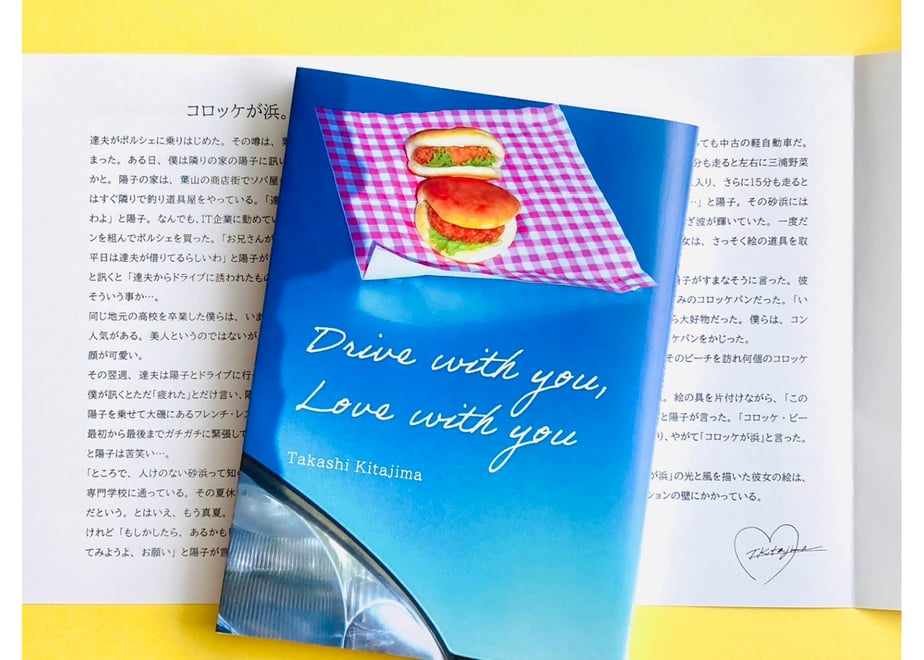 コロッケが浜。
達夫がポルシェに乗りはじめた。その噂は、
まった。ある日、僕は隣りの家の陽子に訊い
かと。陽子の家は、葉山の商店街でソバ屋
はすぐ隣りで釣り道具屋をやっている。「達
わよ」と陽子。なんでも、IT企業に勤めてい
ンを組んでポルシェを買った。「お兄さんが
平日は達夫が借りてるらしいわ」と陽子が
と訊くと「達夫からドライブに誘われたもの
そういう事か…。
同じ地元の高校を卒業した僕らは、いま
人気がある。美人というのではないが
顔が可愛い。
その翌週、達夫は陽子とドライブに行
僕が訊くとただ「疲れた」とだけ言い、陽
陽子を乗せて大磯にあるフレンチ・レス
最初から最後までガチガチに緊張して
と陽子は苦笑い…。
「ところで、人けのない砂浜って知
専門学校に通っている。その夏休
だという。とはいえ、もう真夏。
けれど「もしかしたら、あるかも
てみようよ、お願い」と陽子が言
Drive with you,
Love with you
Takashi Kitajima
っても中古の軽自動車だ。
分も走ると左右に三浦野菜
入り、さらに15分も走ると
…」と陽子。その砂浜には
ざ波が輝いていた。一度だ
女は、さっそく絵の道具を取
陽子がすまなそうに言った。彼
みのコロッケパンだった。「い
ら大好物だった。僕らは、コン
ケパンをかじった。
そのビーチを訪れ何個のコロッケ
。絵の具を片付けながら、「この
と陽子が言った。「コロッケ・ビー
り、やがて「コロッケが浜」と言った。
が浜」の光と風を描いた彼女の絵は、
ションの壁にかかっている。
T.Kitajima